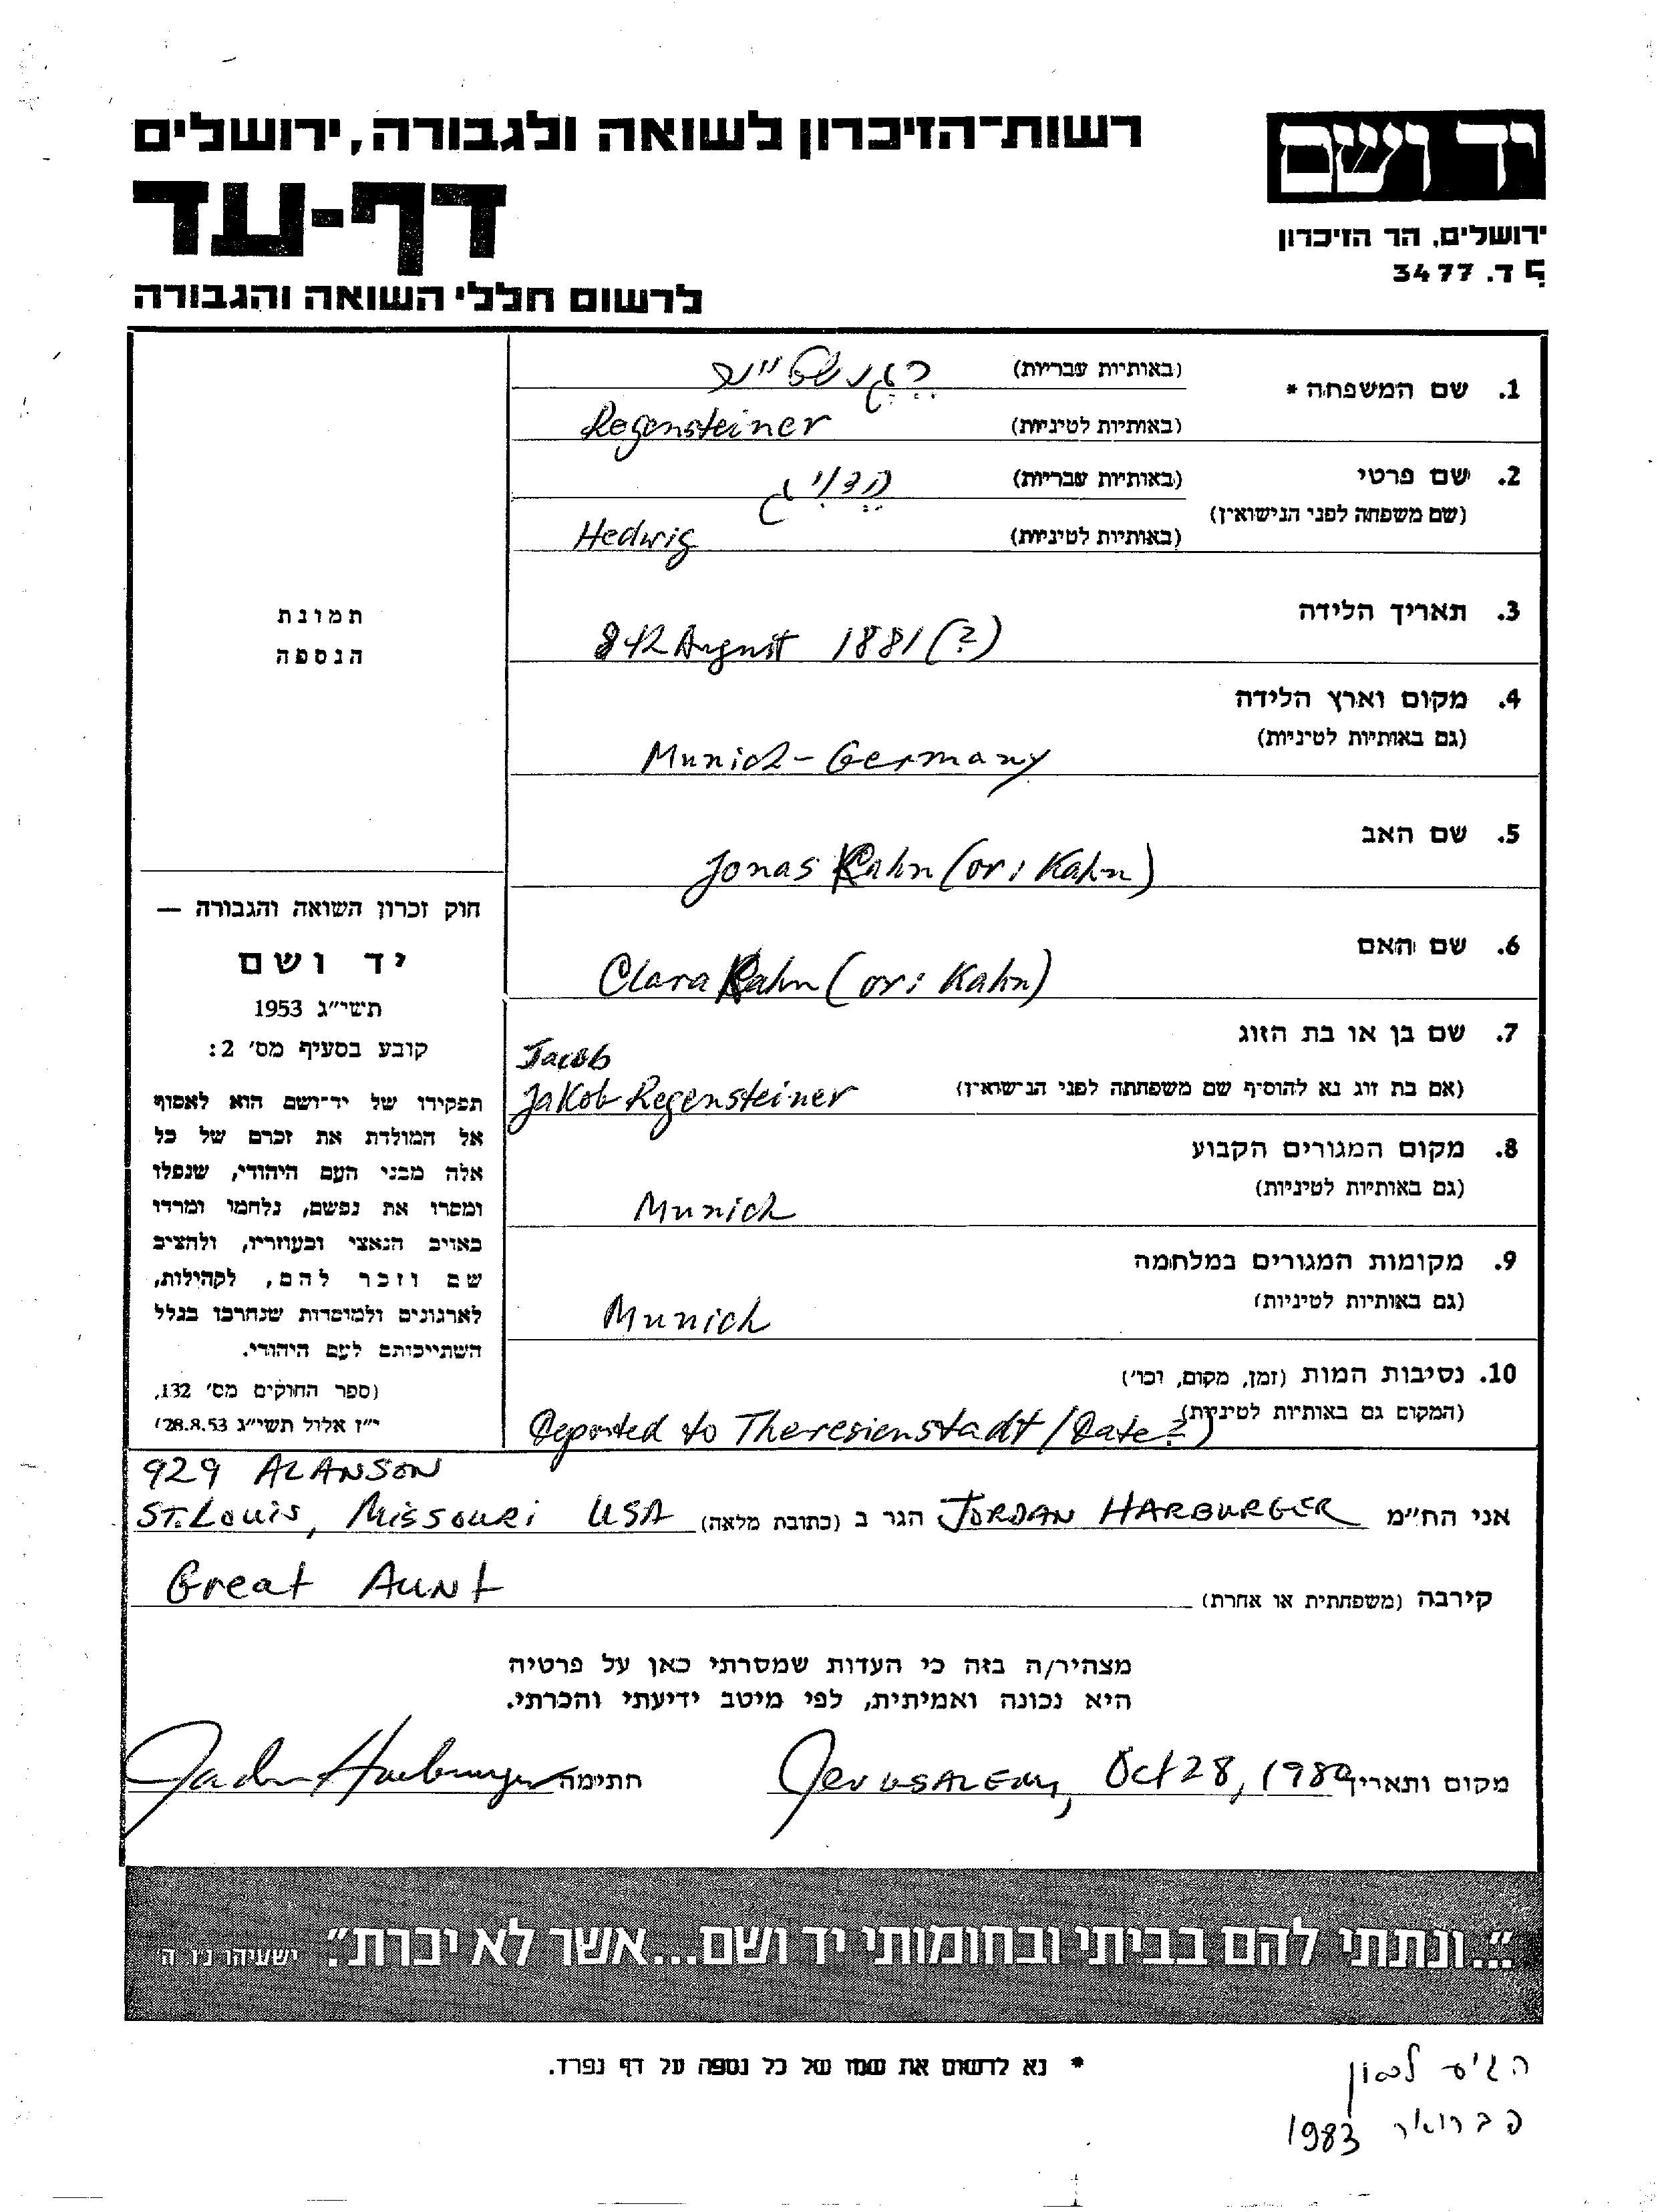 רשות־הזיכרון לשואה ולגבורה, ירושלים
דף-עד
לרשום חללי השואה והגבורה
יד ושם
ירושלים, הר הזיכרון
ת. ד. 3477
1. שם המשפחה * (באותיות עבריות) רֶגֶנשטיינר
(באותיות לטיניות) Regensteiner
2. שם פרטי (באותיות עבריות) הֶדויג
(שם משפחה לפני הנישואין)
(באותיות לטיניות) Hedwig
3. תאריך הלידה
8th August 1881 (?)
4. מקום וארץ הלידה
(גם באותיות לטיניות)
Munich - Germany
5. שם האב
Jonas Kahn (or: Kahn)
6. שם האם
Clara Kahn (or: Kahn)
7. שם בן או בת הזוג
Jacob
(אם בת זוג נא להוסיף שם משפחתה לפני הנישואין) Jakob Regensteiner
8. מקום המגורים הקבוע
(גם באותיות לטיניות)
Munich
9. מקומות המגורים במלחמה
(גם באותיות לטיניות)
Munich
10. נסיבות המות (זמן, מקום, וכו')
(המקום גם באותיות לטיניות)
Deported to Theresienstadt (Date?)
תמונת
הנספה
חוק זכרון השואה והגבורה —
יד ושם
תשי"ג 1953
קובע בסעיף מס' 2:
תפקידו של יד־ושם הוא לאסוף
אל המולדת את זכרם של כל
אלה מבני העם היהודי, שנפלו
ומסרו את נפשם, נלחמו ומרדו
באויב הנאצי ובעוזריו, ולהציב
שם וזכר להם, לקהילות,
לארגונים ולמוסדות שנחרבו בגלל
השתייכותם לעם היהודי.
(ספר החוקים מס' 132,
י"ז אלול תשי"ג 28.8.53)
929 ALANSON
אני הח"מ JORDAN HARBURGER הגר ב (כתובת מלאה) ST. Louis, Missouri USA
קירבה (משפחתית או אחרת) Great Aunt
מצהיר/ה בזה כי העדות שמסרתי כאן על פרטיה
היא נכונה ואמיתית, לפי מיטב ידיעתי והכרתי.
מקום ותאריך Jerusalem, Oct 28, 1980 חתימה Jordan Harburger
"...ונתתי להם בביתי ובחומותי יד ושם...אשר לא יכרת". ישעיהו נ"ו ה'
* נא לרשום את שמו של כל נספה על דף נפרד.
הגיע לכאן
פברואר 1983